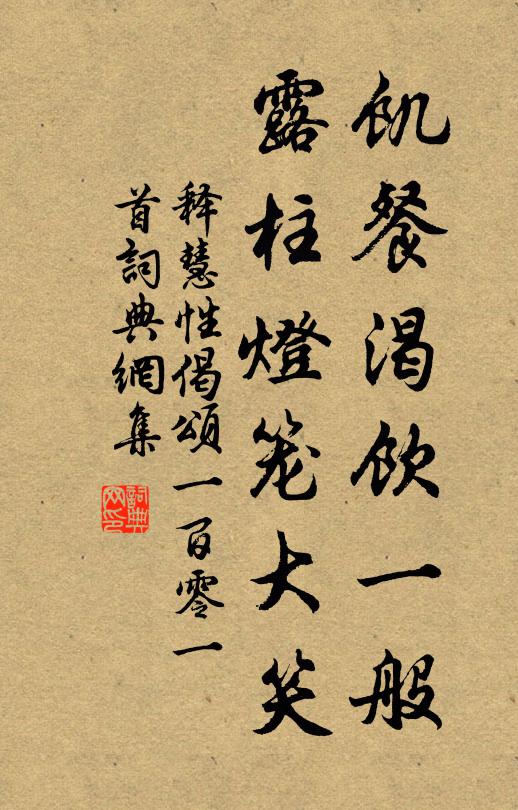 飢餐渴飲一般
露柱燈笼大笑
释慧性偈頌一百零一
首詞典網集
詞典
网印